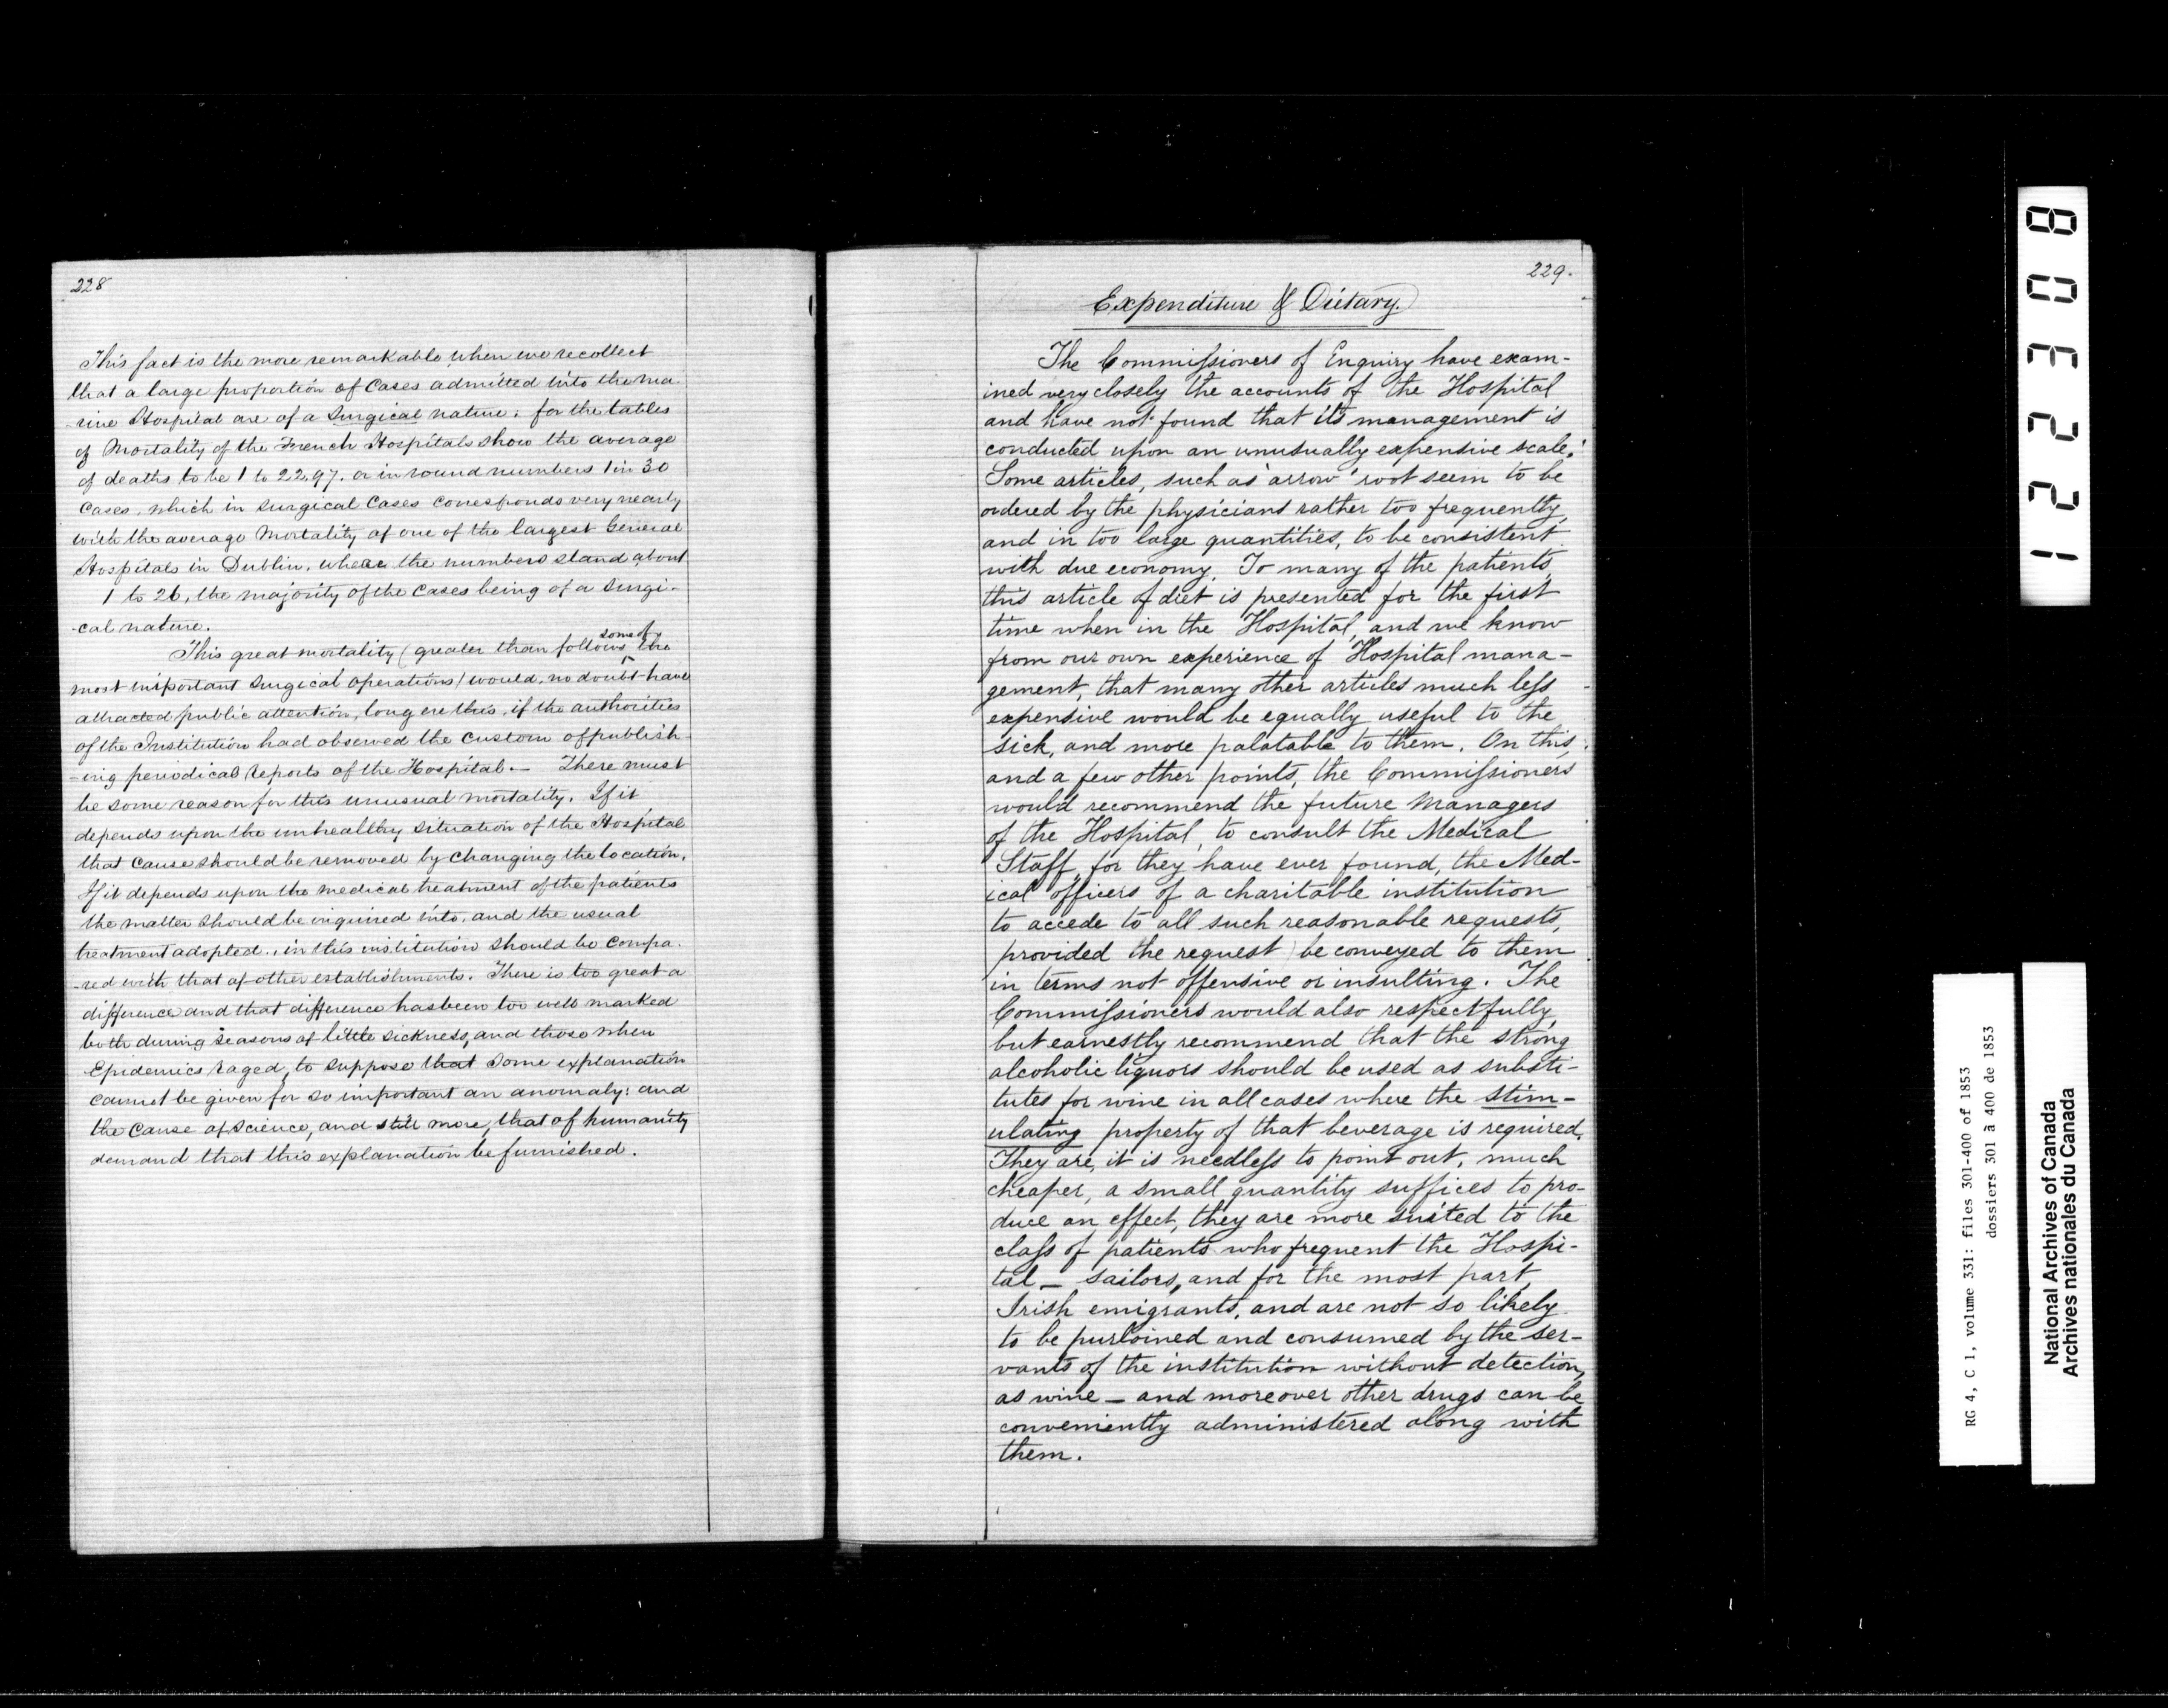 228
This fact is the more remarkable when we recollect
that a large proportion of Cases admitted into the ma-
-rine Hospital are of a Surgical nature: for the tables
of Mortality of the French Hospitals show the average
of deaths to be 1 to 22.97. or in round numbers 1 in 30
Cases, which in Surgical Cases corresponds very nearly
with the average Mortality of one of the largest General
Hospitals in Dublin, where the numbers stand about
1 to 26, the majority of the Cases being of a Surgi-
-cal nature.
This great mortality (greater than follows some of the
most important Surgical operations) would, no doubt have
attracted public attention, long ere this, if the authorities
of the Institution had observed the custom of publish-
-ing periodical Reports of the Hospital. — There must
be some reason for this unusual mortality. If it
depends upon the unhealthy situation of the Hospital
that cause should be removed by changing the location.
If it depends upon the medical treatment of the patients
the matter should be inquired into, and the usual
treatment adopted, in this institution should be compa-
-red with that of other establishments. There is too great a
difference and that difference has been too well marked
both during seasons of little sickness, and those when
Epidemics raged, to suppose that some explanation
cannot be given for so important an anomaly: and
the Cause of Science, and still more, that of humanity
demand that this explanation be furnished.
229.
Expenditure & Dietary.
The Commissioners of Enquiry have exam-
ined very closely the accounts of the Hospital
and have not found that its management is
conducted upon an unusually expensive scale.
Some articles, such as arrow root seem to be
ordered by the physicians rather too frequently
and in too large quantities, to be consistent
with due economy. To many of the patients
this article of diet is presented for the first
time when in the Hospital, and we know
from our own experience of Hospital mana-
gement, that many other articles much less
expensive would be equally useful to the
sick, and more palatable to them. On this,
and a few other points, the Commissioners
would recommend the future Managers
of the Hospital, to consult the Medical
Staff, for they have ever found, the Med-
ical officers of a charitable institution
to accede to all such reasonable requests,
provided the request be conveyed to them
in terms not offensive or insulting. The
Commissioners would also respectfully,
but earnestly recommend that the strong
alcoholic liquors should be used as substi-
tutes for wine in all cases where the stim-
ulating property of that beverage is required.
They are, it is needless to point out, much
cheaper, a small quantity suffices to pro-
duce an effect, they are more suited to the
class of patients who frequent the Hospi-
tal — sailors, and for the most part,
Irish emigrants, and are not so likely
to be purloined and consumed by the ser-
vants of the institution without detection,
as wine — and moreover other drugs can be
conveniently administered along with
them.
12230 8
RG 4, C 1, volume 331: files 301-400 of 1853
dossiers 301 à 400 de 1853
National Archives of Canada
Archives nationales du Canada